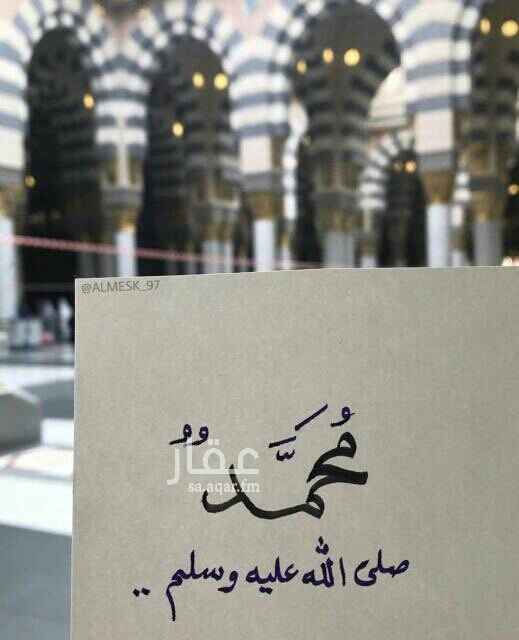 @ALMESK_97
مُحَمَّدٌ
عقار
sa.aqar.fm
صلى الله عليه وسلم ..